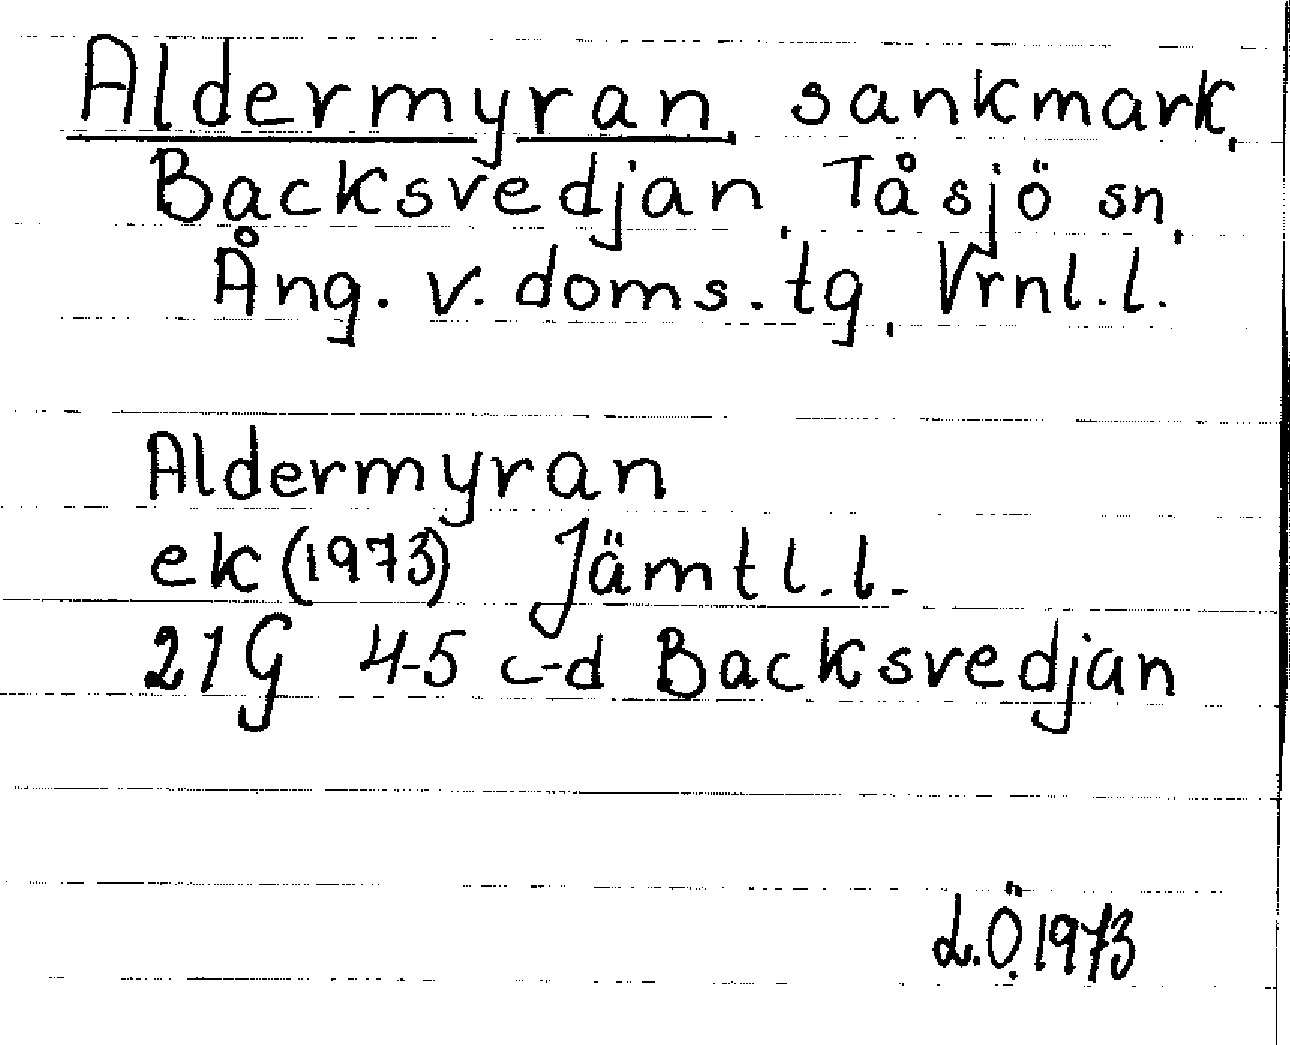 Aldermyran, sankmark,
Backsvedjan, Tåsjö sn,
Ång. v. doms. tg, Vrnl. l.
Aldermyran
ek (1973) Jämtl. l.
21G 4-5 c-d Backsvedjan
L.Ö. 1973